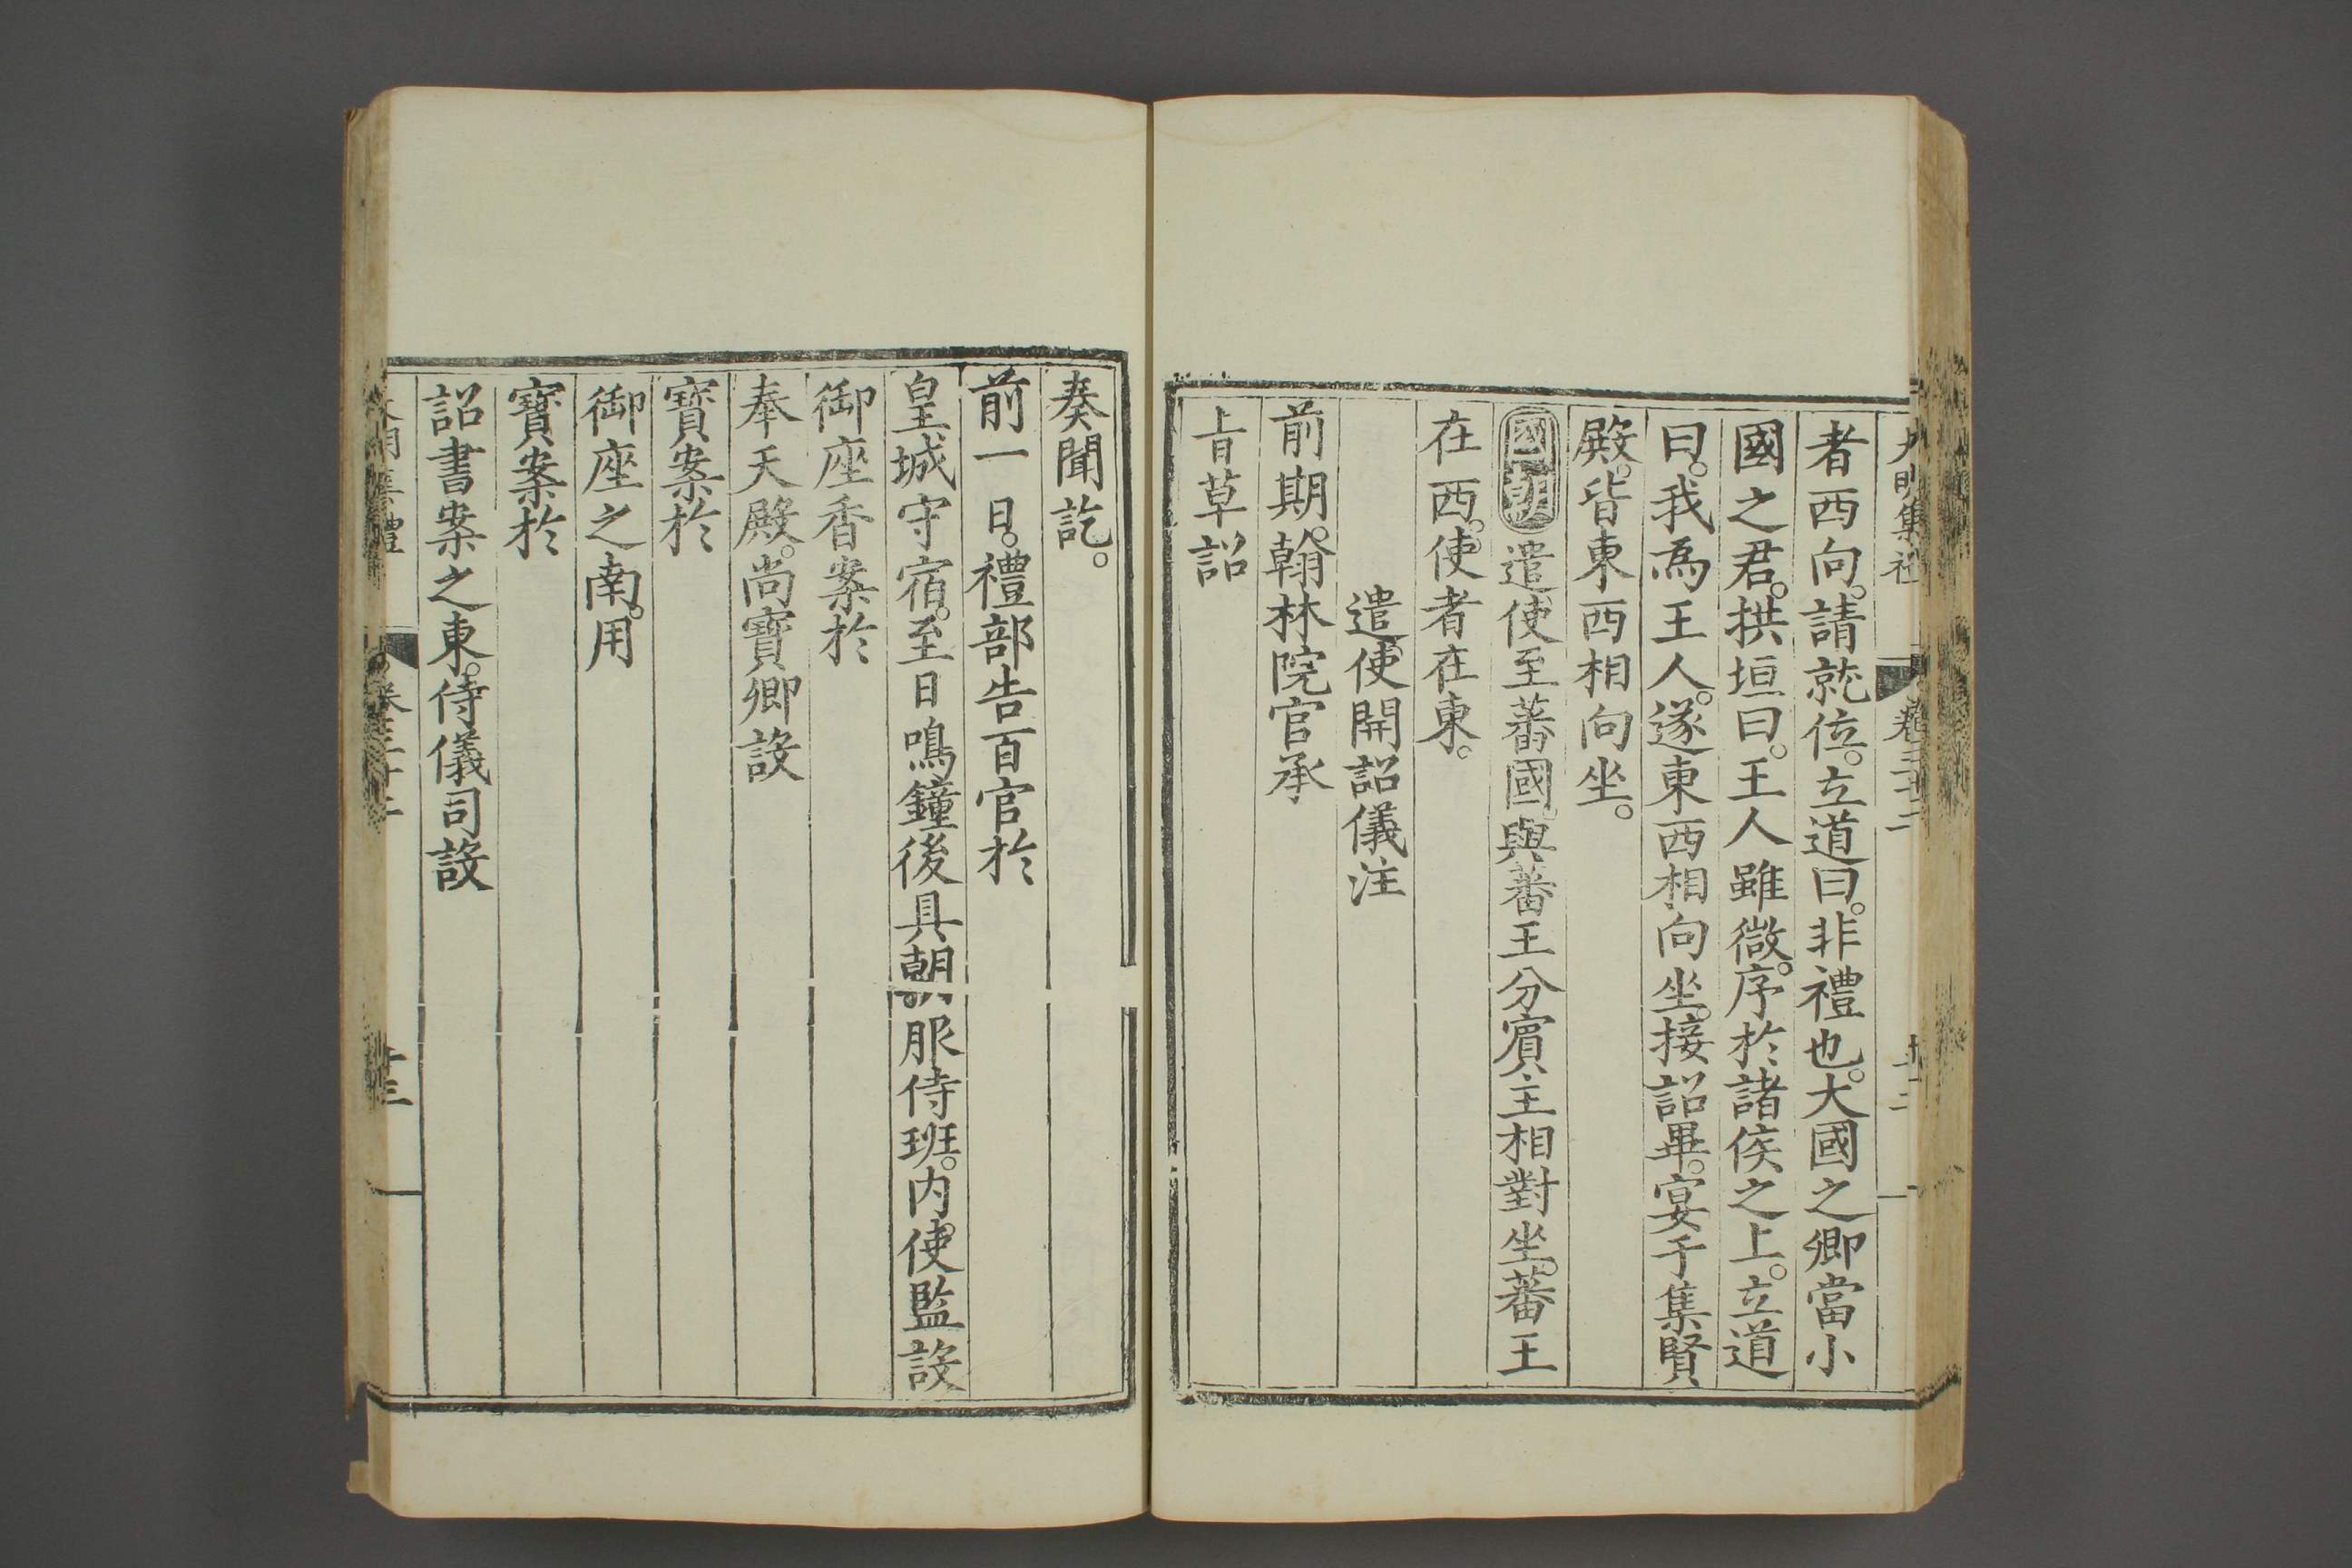 大明集禮 卷三十二 十二
者西向。請就位。立道曰。非禮也。大國之卿當小
國之君。拱垣曰。王人雖微。序於諸侯之上。立道
曰。我為王人。遂東西相向坐。接詔畢。宴于集賢
殿。皆東西相向坐。
國朝遣使至蕃國。與蕃王分賔主相對坐。蕃王
在西。使者在東。
遣使開詔儀注
前期。翰林院官承
上旨草詔
奏聞訖。
前一日。禮部告百官於
皇城守宿。至日鳴鐘後具朝服侍班。内使監設
御座香案於
奉天殿。尚寶卿設
寳案於
御座之南。用
寳案於
詔書案之東。侍儀司設
大明集禮 卷三十二 十三